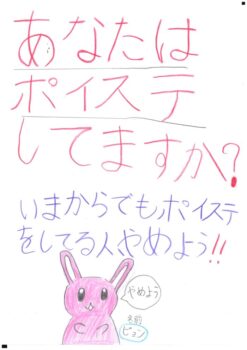 あなたは
ポイステ
してますか?
いまからでもポイステ
をしてる人やめよう!!
やめよう
名前
ピョン